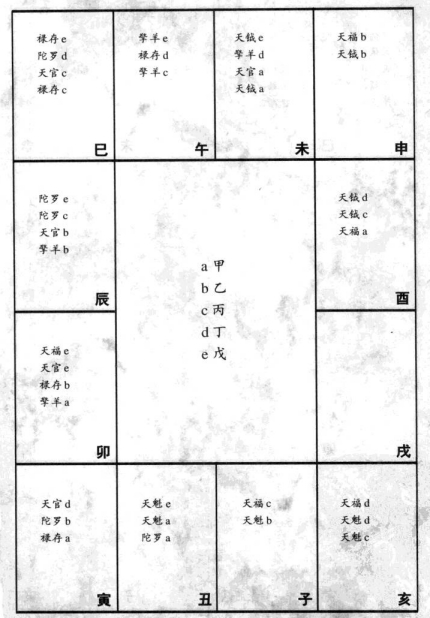 禄存 e
陀罗 d
天官 c
禄存 c
巳
擎羊 e
禄存 d
擎羊 c
午
天钺 e
擎羊 d
天官 a
天钺 a
未
天福 b
天钺 b
申
陀罗 e
陀罗 c
天官 b
擎羊 b
辰
a 甲
b 乙
c 丙
d 丁
e 戊
天钺 d
天钺 c
天福 a
酉
天福 e
天官 e
禄存 b
擎羊 a
卯
戌
天官 d
陀罗 b
禄存 a
寅
天魁 e
天魁 a
陀罗 a
丑
天福 c
天魁 b
子
天福 d
天魁 d
天魁 c
亥